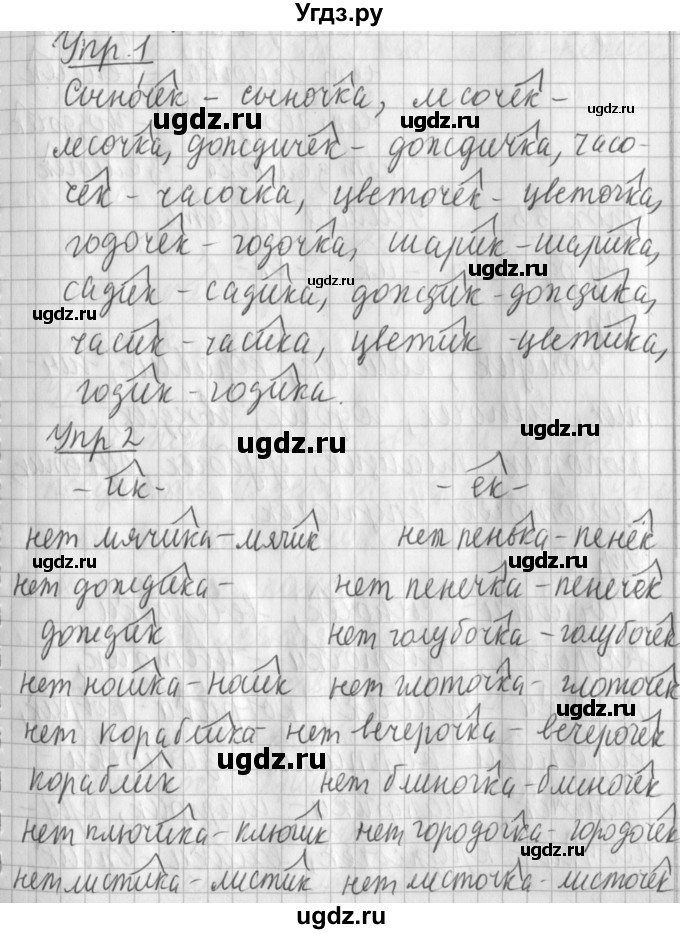 Угдз.ру
Упр. 1
Сыночек – сыночка, лесочек –
ugdz.ru ugdz.ru
лесочка, дождичек – дождичка, часо-
ugdz.ru
чек – часочка, цветочек – цветочка,
годочек – годочка, шарик – шарика,
ugdz.ru
садик – садика, дождик – дождика,
ugdz.ru ugdz.ru
часик – часика, цветик – цветика,
годик – годика.
Упр 2 ugdz.ru ugdz.ru
– ик – – ек –
нет мячика – мячик нет пенька – пенёк
ugdz.ru ugdz.ru
нет дождика – нет пенечка – пенечек
дождик нет голубочка – голубочек
нет ношка – ношик нет глоточка – глоточек
ugdz.ru
нет кораблика – нет вечерочка – вечерочек
ugdz.ru
кораблик нет блиночка – блиночек
нет плючика – ключик нет городочка – городочек
ugdz.ru ugdz.ru
нет листика – листик нет листочка – листочек
ugdz.ru